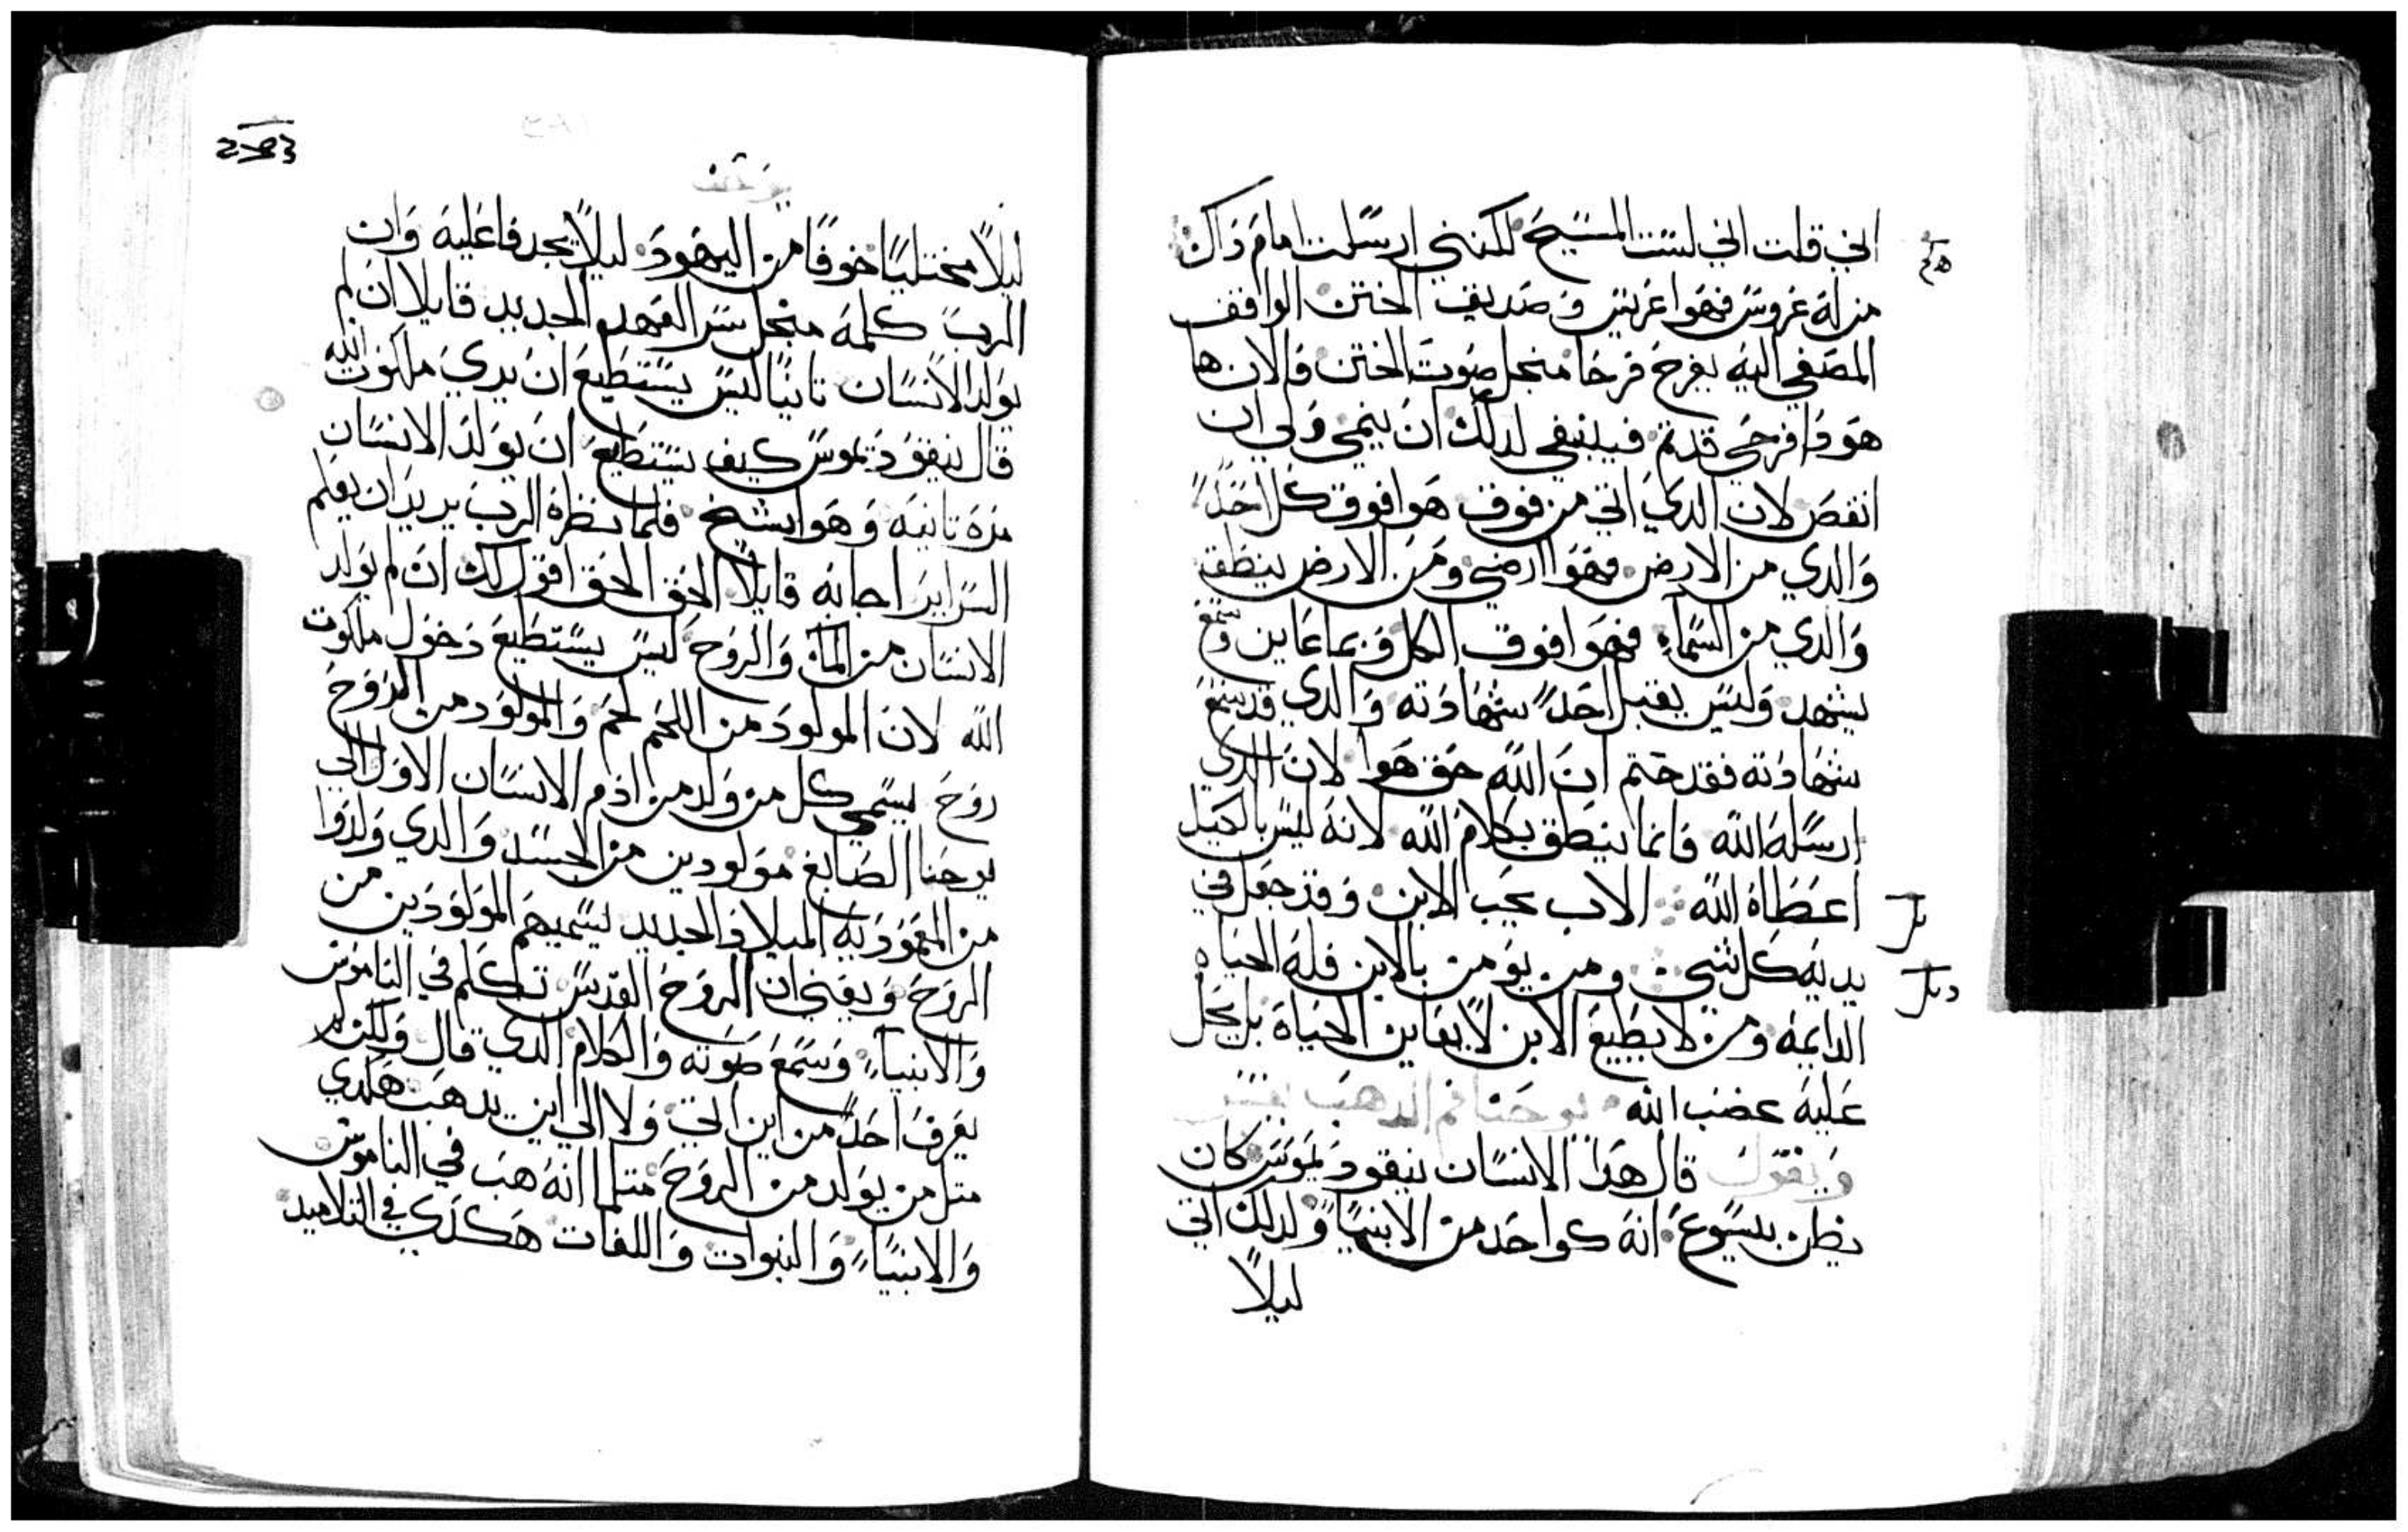 اني قلت اني لست المسيح لكنني ارسلت امام داك
من له عروس فهوا عريس وصديق الختن الواقف
المصغي اليه يفرح فرحًا منجل صوت الختن فالان ها
هودا فرحي قد تم فينبغي لدلك ان ينمي ولي ان
انقص لان الدي اتي من فوق هوا فوق كل احدًا
والدي من الارض فهوا ارضي ومن الارض ينطق
والدي من السماء فهوا فوق الكل وبما عاين وسمع
يشهد وليس يقبل احدًا شهادته والدي قد سمع
شهادته فقد ختم ان الله حق هوا لان الدي
ارسله الله فانما ينطق بكلام الله لانه ليس بالكيل
اعطاه الله الاب يحب الابن وقد جعل في
يديه كل شي ومن يومن بالابن فله الحياه
الدايمه ومن لا يطيع الابن لا يعاين الحياة بل يحل
عليه غضب الله يوحنا فم الدهب يفسر
ويقول قال هدا الانسان نيقوديموس كان
يظن بيسوع انه كواحد من الانبياء ولدلك اتي
ليلاً
يوحنا
ليلاً مختليًا خوفًا من اليهود ليلاً يجدفا عليه وان
الرب كلمه منجل سر العهد الجديد قايلا ان لم
يولد الانسان تانيًا ليس يستطيع ان يري ملكوت الله
قال نيقوديموس كيف يستطيع ان يولد الانسان
مره تانيه وهوا شيخ فلما نظره الرب يريد ان يعلم
السراير اجابه قايلاً الحق الحق اقول لك ان لم يولد
الانسان من الماء والروح ليس يستطيع دخول ملكوت
الله لان المولود من اللحم لحم والمولود من الروح
روح يسمي كل من ولد من ادم الانسان الاول الي
يوحنا الصابغ مولودين من الجسد والدي ولدوا
من المعموديه الميلاد الجديد يسميهم المولودين من
الروح ويعني ان الروح القدس تكلم في الناموس
والانبياء وسمع صوته والكلام الدي قال ولكن لم
يعرف احدًا من اين اتي ولا الي اين يدهب هكدي
متل من يولد من الروح متلما انه هب في الناموس
والانبياء والنبوات واللغات هكدي في التلاميد